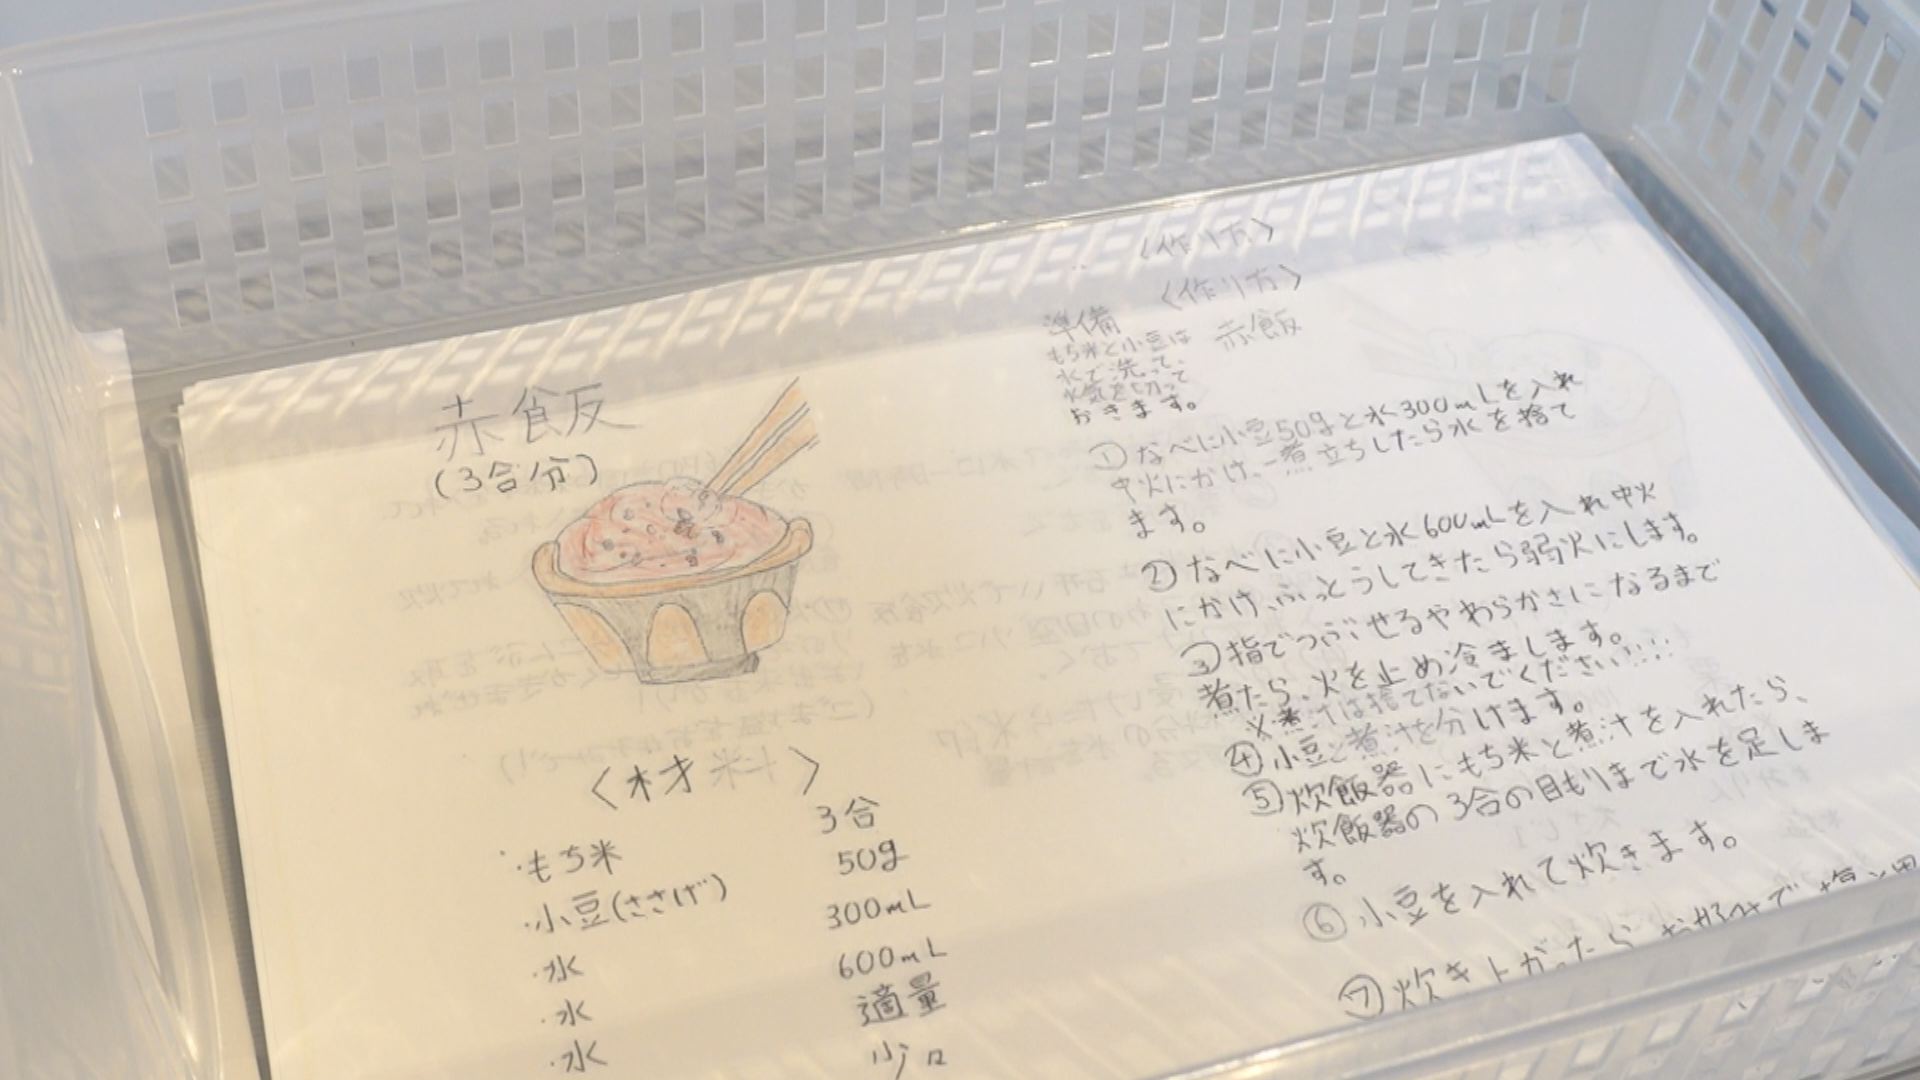 赤飯
(3合分)
〈材料〉
・もち米 3合
・小豆(ささげ) 50g
・水 300mL
・水 600mL
・水 適量
〈作り方〉
〈作り方〉
赤飯
準備
もち米と小豆は
水で洗って、
水気を切って
おきます。
①なべに小豆50gと水300mLを入れ
中火にかけ、一煮立ちしたら水を捨て
ます。
②なべに小豆と水600mLを入れ中火
にかけ、ふっとうしてきたら弱火にします。
③指でつぶせるやわらかさになるまで
煮たら、火を止め冷まします。
※煮汁は捨てないでください!!!
④小豆と煮汁を分けます。
⑤炊飯器にもち米と煮汁を入れたら、
炊飯器の3合の目もりまで水を足しま
す。
⑥小豆を入れて炊きます。
⑦炊き上がったら